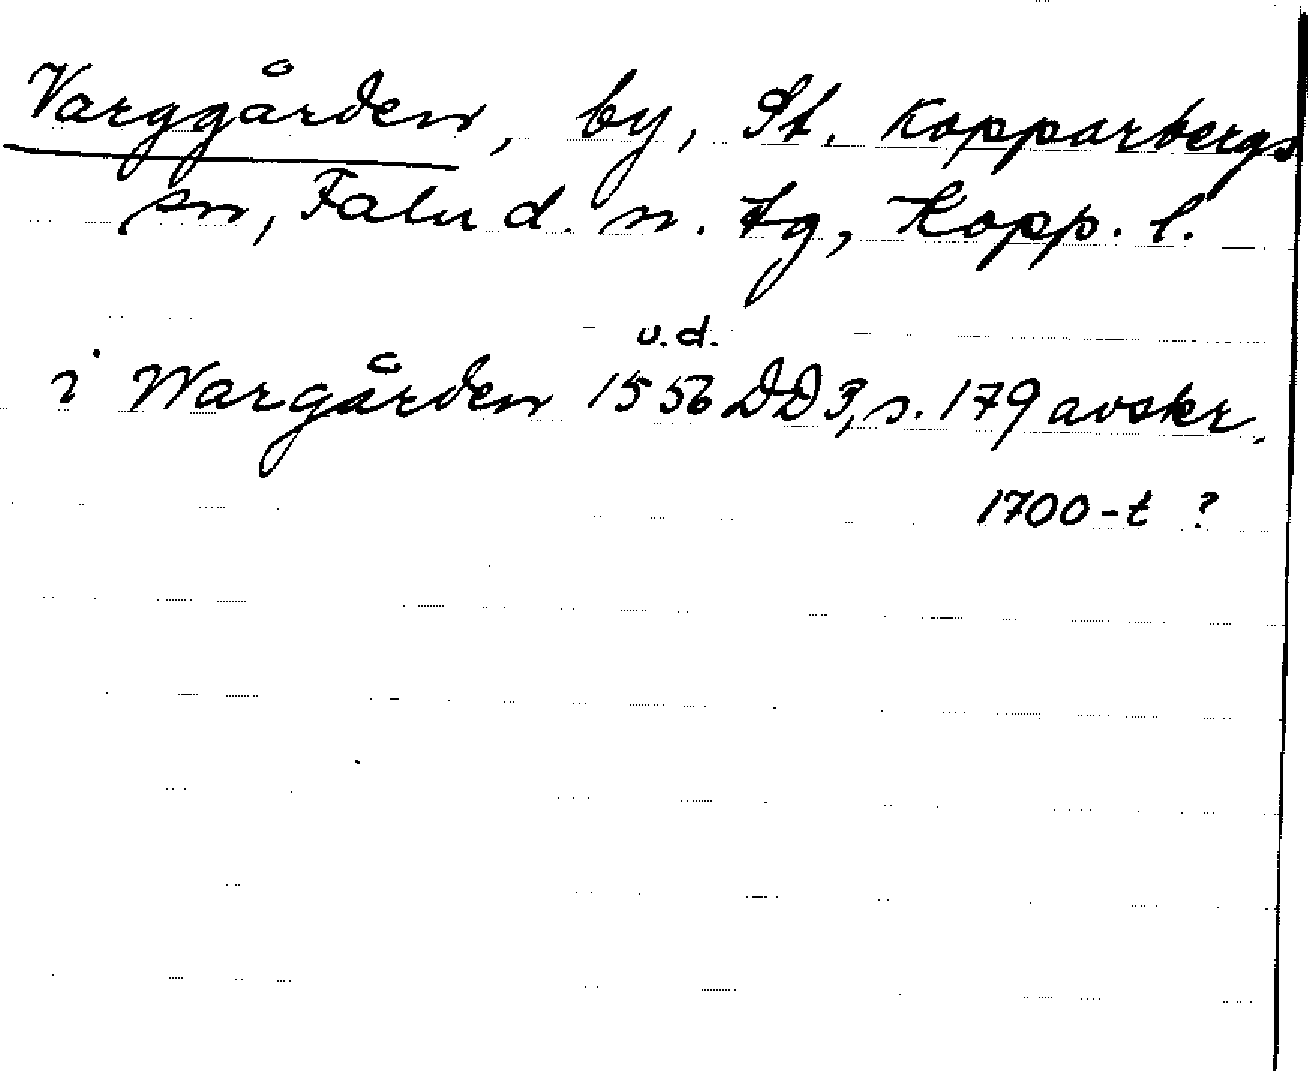 Varggården, by, St. Kopparbergs
sn, Falu d. n. tg, Kopp. l.
u.d.
i Wargården 1556 DD 3, s. 179 avskr.
1700-t ?